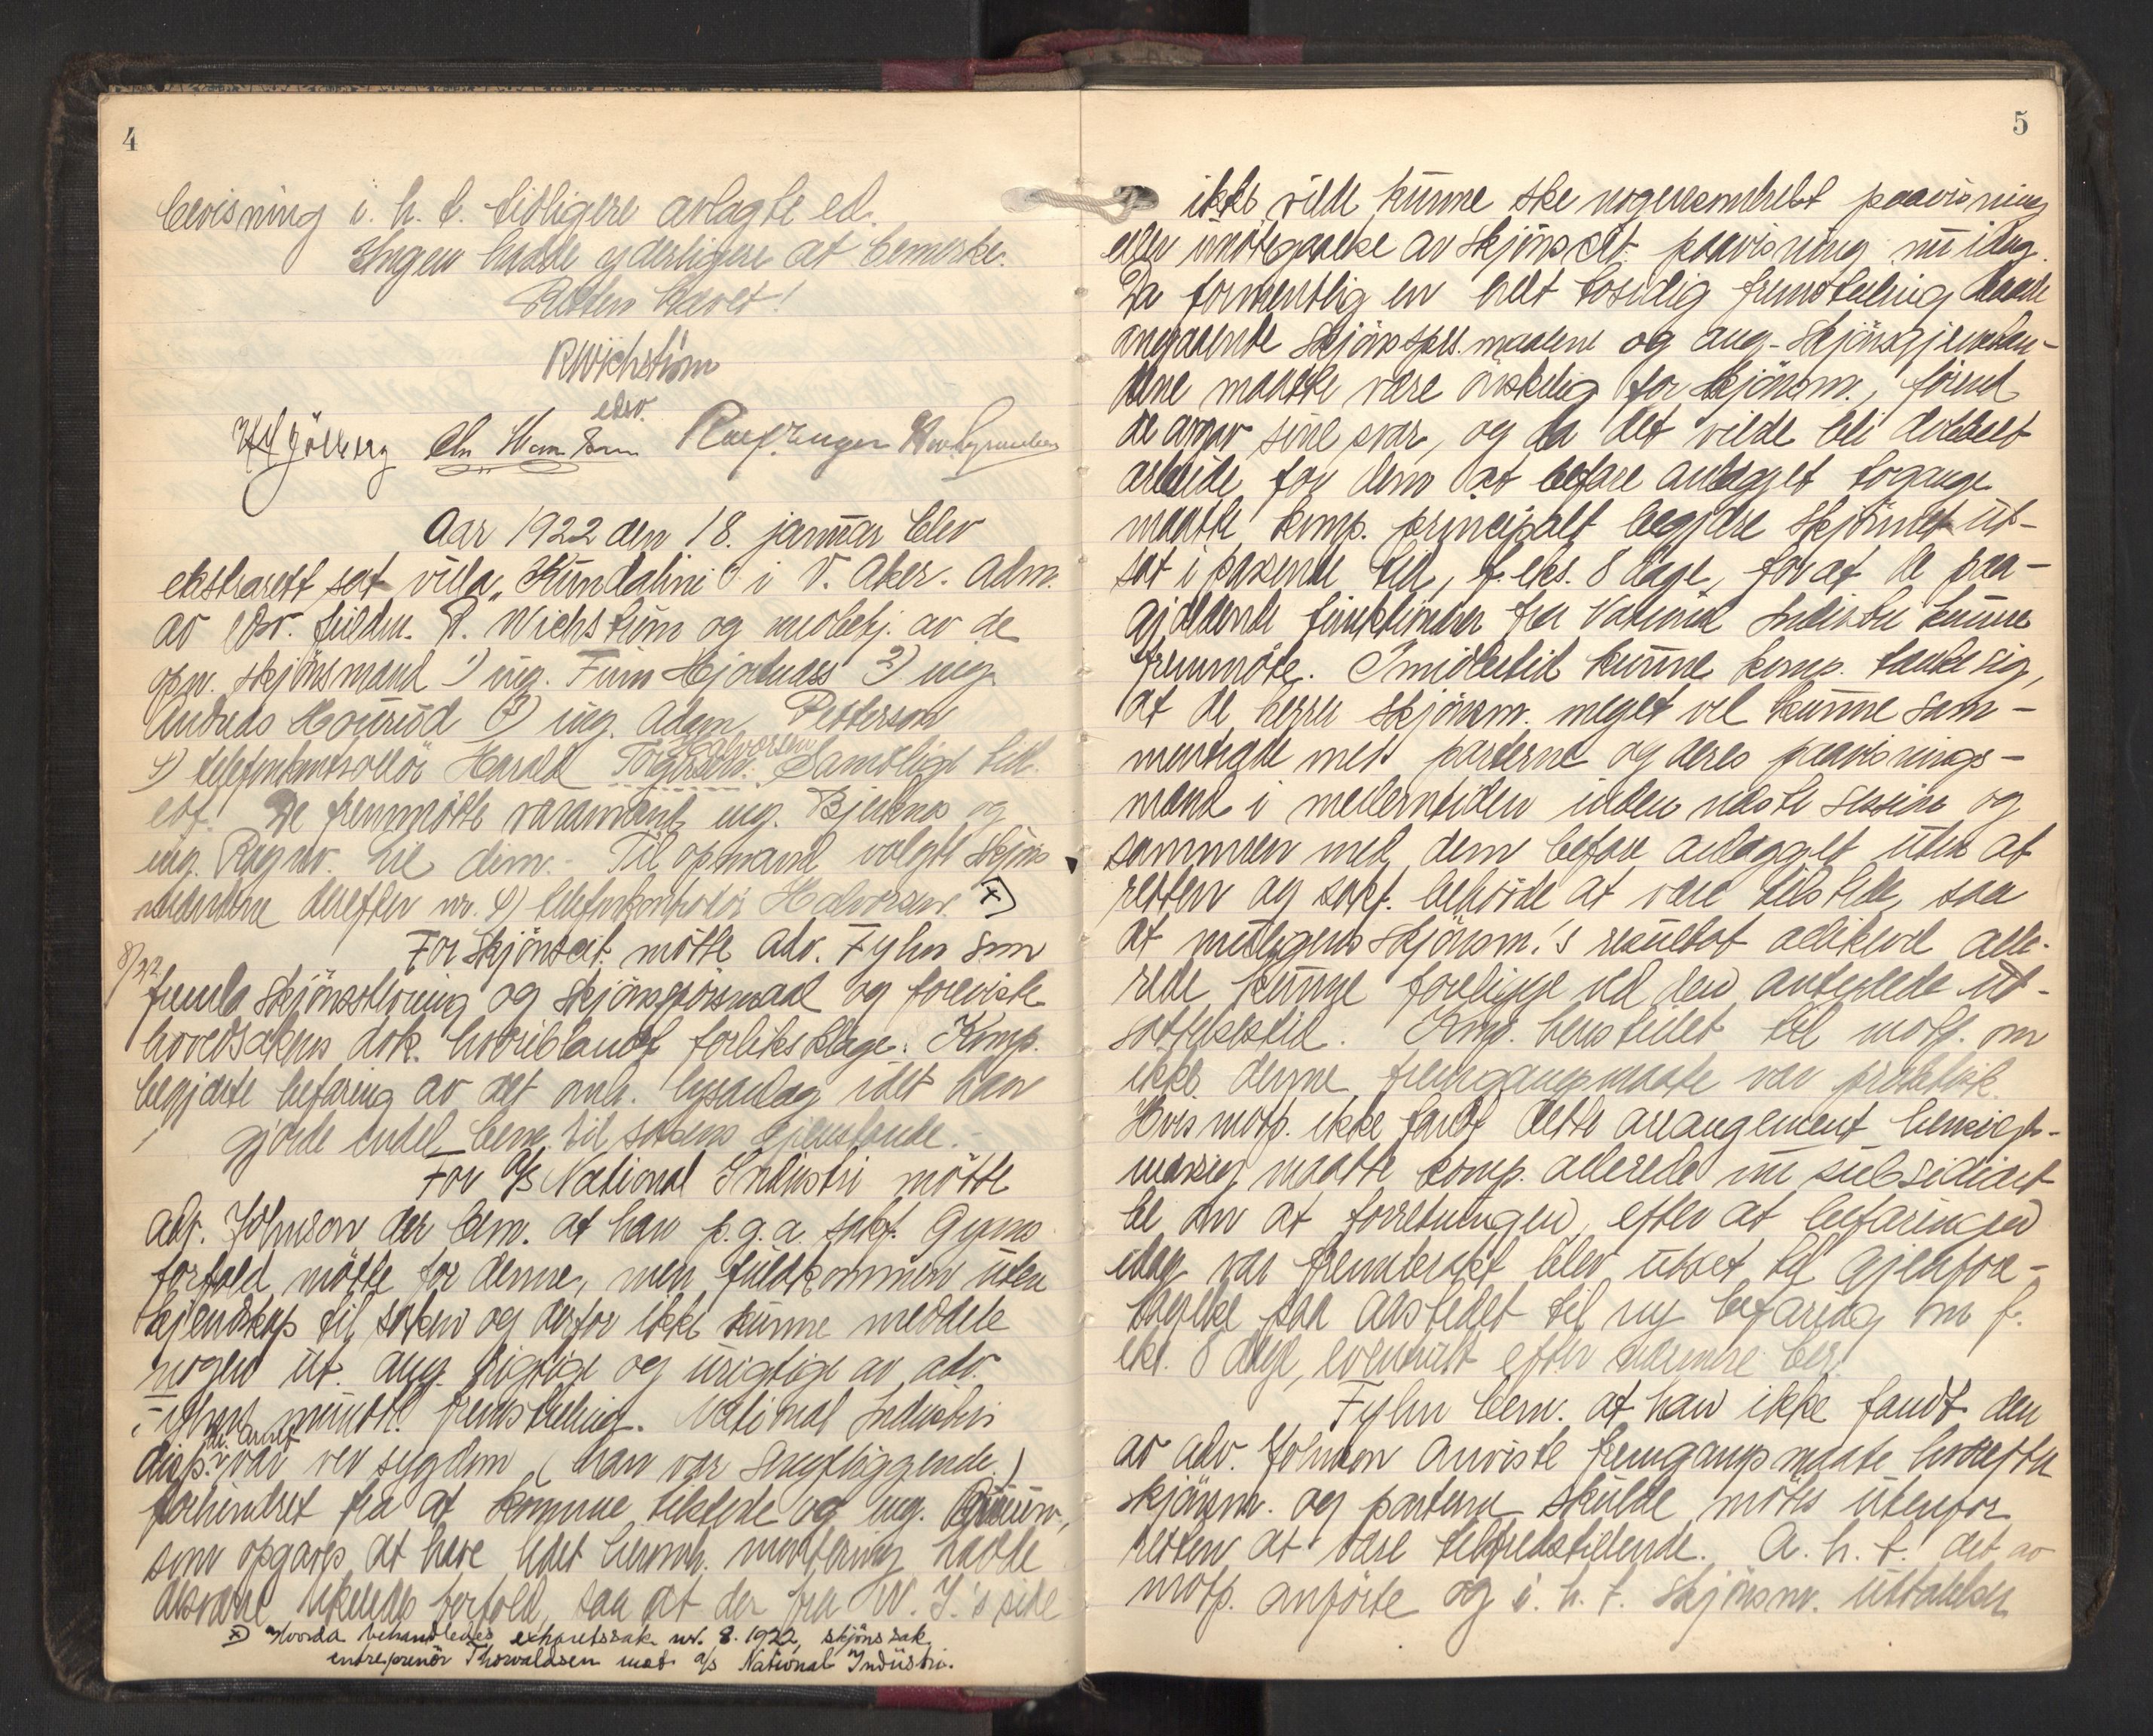 4
bevisning i. h. t. tidligere avlagte ed.
Ingen hadde yderligere at bemerke.
Retten hævet!
RWichstrøm
edsv.
Aar 1922 den 18. januar blev
ekstrarett sat villa „Kundalini" i V. Aker. Adm.
av edsv. fuldm. R. Wichstrøm og medbetj. av de
opn. skjønsmænd 1) ing. Finn Hjortnæss 2) ing.
Andreas Hourud 3) ing. Adam Petterson
Halvorsen
4) telefonkontrollør Harald Torgersen. Samtlige tidl.
edf. De fremmøtte varamænd ing. Bjerknes og
ing. Ragnv. Lie dim. – Til opmand valgte skjøns
mændene derefter nr. 4) telefonkontrollør Halvorsen. x)
For skjønscit. møtte adv. Fyhn som
8/22
fremla skjønsstevning og skjønsspørsmaal og foreviste
hovedsakens dok. hvoriblandt forliksklage. Komp.
begjærte befaring av det omh. lysanlæg idet han
gjorde endel bem. til sakens gjenstande. –
For A/S National Industri møtte
adv. Johnson der bem. at han p. g. a. sakf. Gyms
forfald møtte for denne, men fuldkommen uten
kjendskap til saken og derfor ikke kunne meddele
nogen ut. ang. rigtige og urigtige av adv.
Fyhns mundtl. fremstilling. National Industris
disp. var ved sygdom (han var sengeliggende)
forhindret fra at komme tilstede og ing. Bruun,
som opgaves at have ledet heromh. montering hadde
desværre likeledes forfald, saa at der fra N. I.'s side
x) Hvorda behandledes extraretssak nr. 8. 1922, skjønssak
entreprenør Thorvaldsen mot a/s National Industri.
5
ikke vilde kunne ske nogensomhelst paavisning
eller imøtegaaelse av skjønscit. paavisning nu idag.
Da formentlig en helt tosidig fremstilling baade
angaaende skjønsspørsmaalene og ang. skjønsgjenstan-
dene maatte være ønskelig for skjønsm., førend
de avgav sine svar, og da det vilde bli dobbelt
arbeide for dem at befare anlægget togange
maatte komp. principalt begjære skjønnet ut-
sat i passende tid, f. eks. 8 dage, for at de paa-
gjældende funktionærer fra National Industri kunne
fremmøte. Imidlertid kunne komp. tænke sig,
at de herrer skjønsm. meget vel kunne sam-
mentræde med parterne og deres paavisnings-
mænd i mellemtiden inden næste session og
sammen med dem befare anlægget uten at
retten og sakf. behøvde at være tilstede, saa
at muligens skjønsm.'s resultat allikevel alle-
rede kunne foreligge ved den antydede ut-
sættelsestid. Komp. henstillet til motp. om
ikke denne fremgangsmaate var praktisk.
Hvis motp. ikke fandt dette arrangement hensigts-
mæssig maatte komp. allerede nu subsidiært
be om at forretningen, efter at befaringen
idag var fremskredet blev utsat til gjenfore-
tagelse paa aastedet til ny befaring om f.
eks. 8 dage, eventuelt efter nærmere ber.
Fyhn bem. at han ikke fandt den
av adv. Johnson anviste fremgangsmaate hvorefter
skjønsm. og parterne skulde møtes utenfor
retten at være tilfredsstillende. A. h. t. det av
motp. anførte og i. h. t. skjønsm. uttalelser